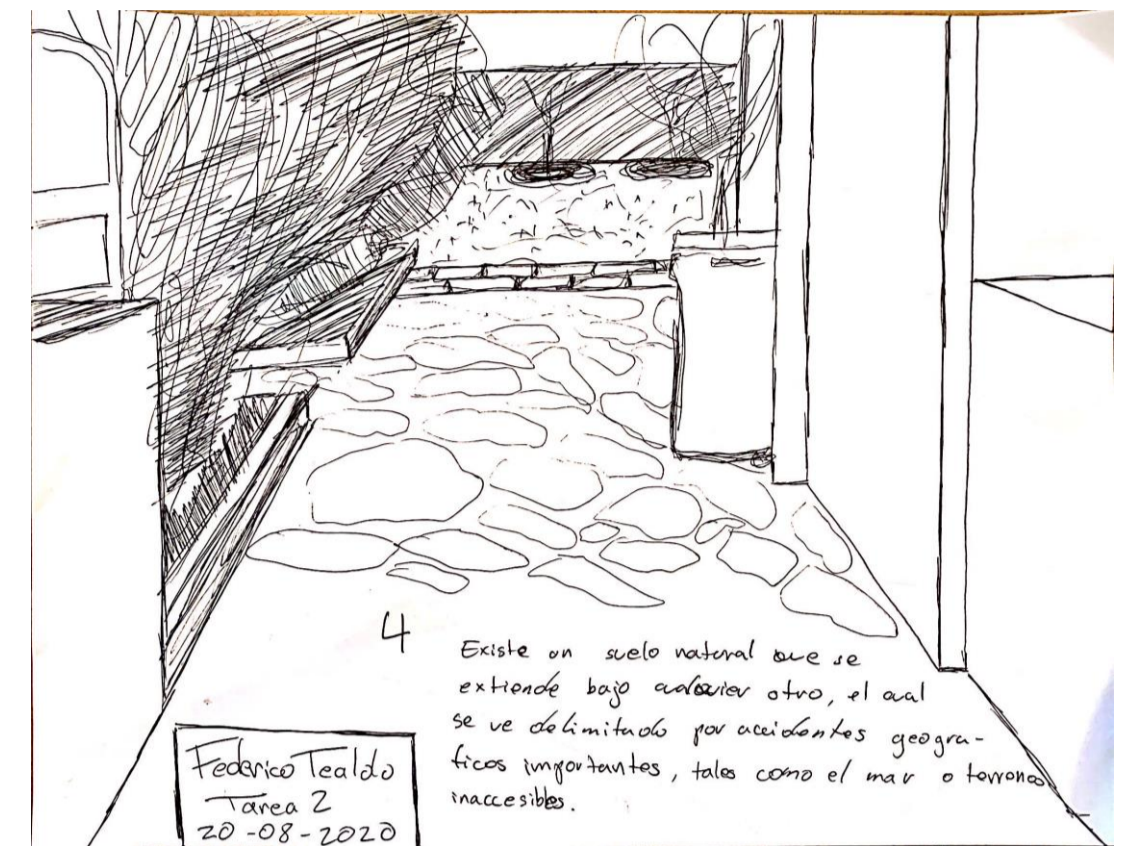 4
Existe un suelo natural que se
extiende bajo cualquier otro, el cual
se ve delimitado por accidentes geogra-
ficos importantes, tales como el mar o terrenos
inaccesibles.
Federico Tealdo
Tarea 2
20-08-2020